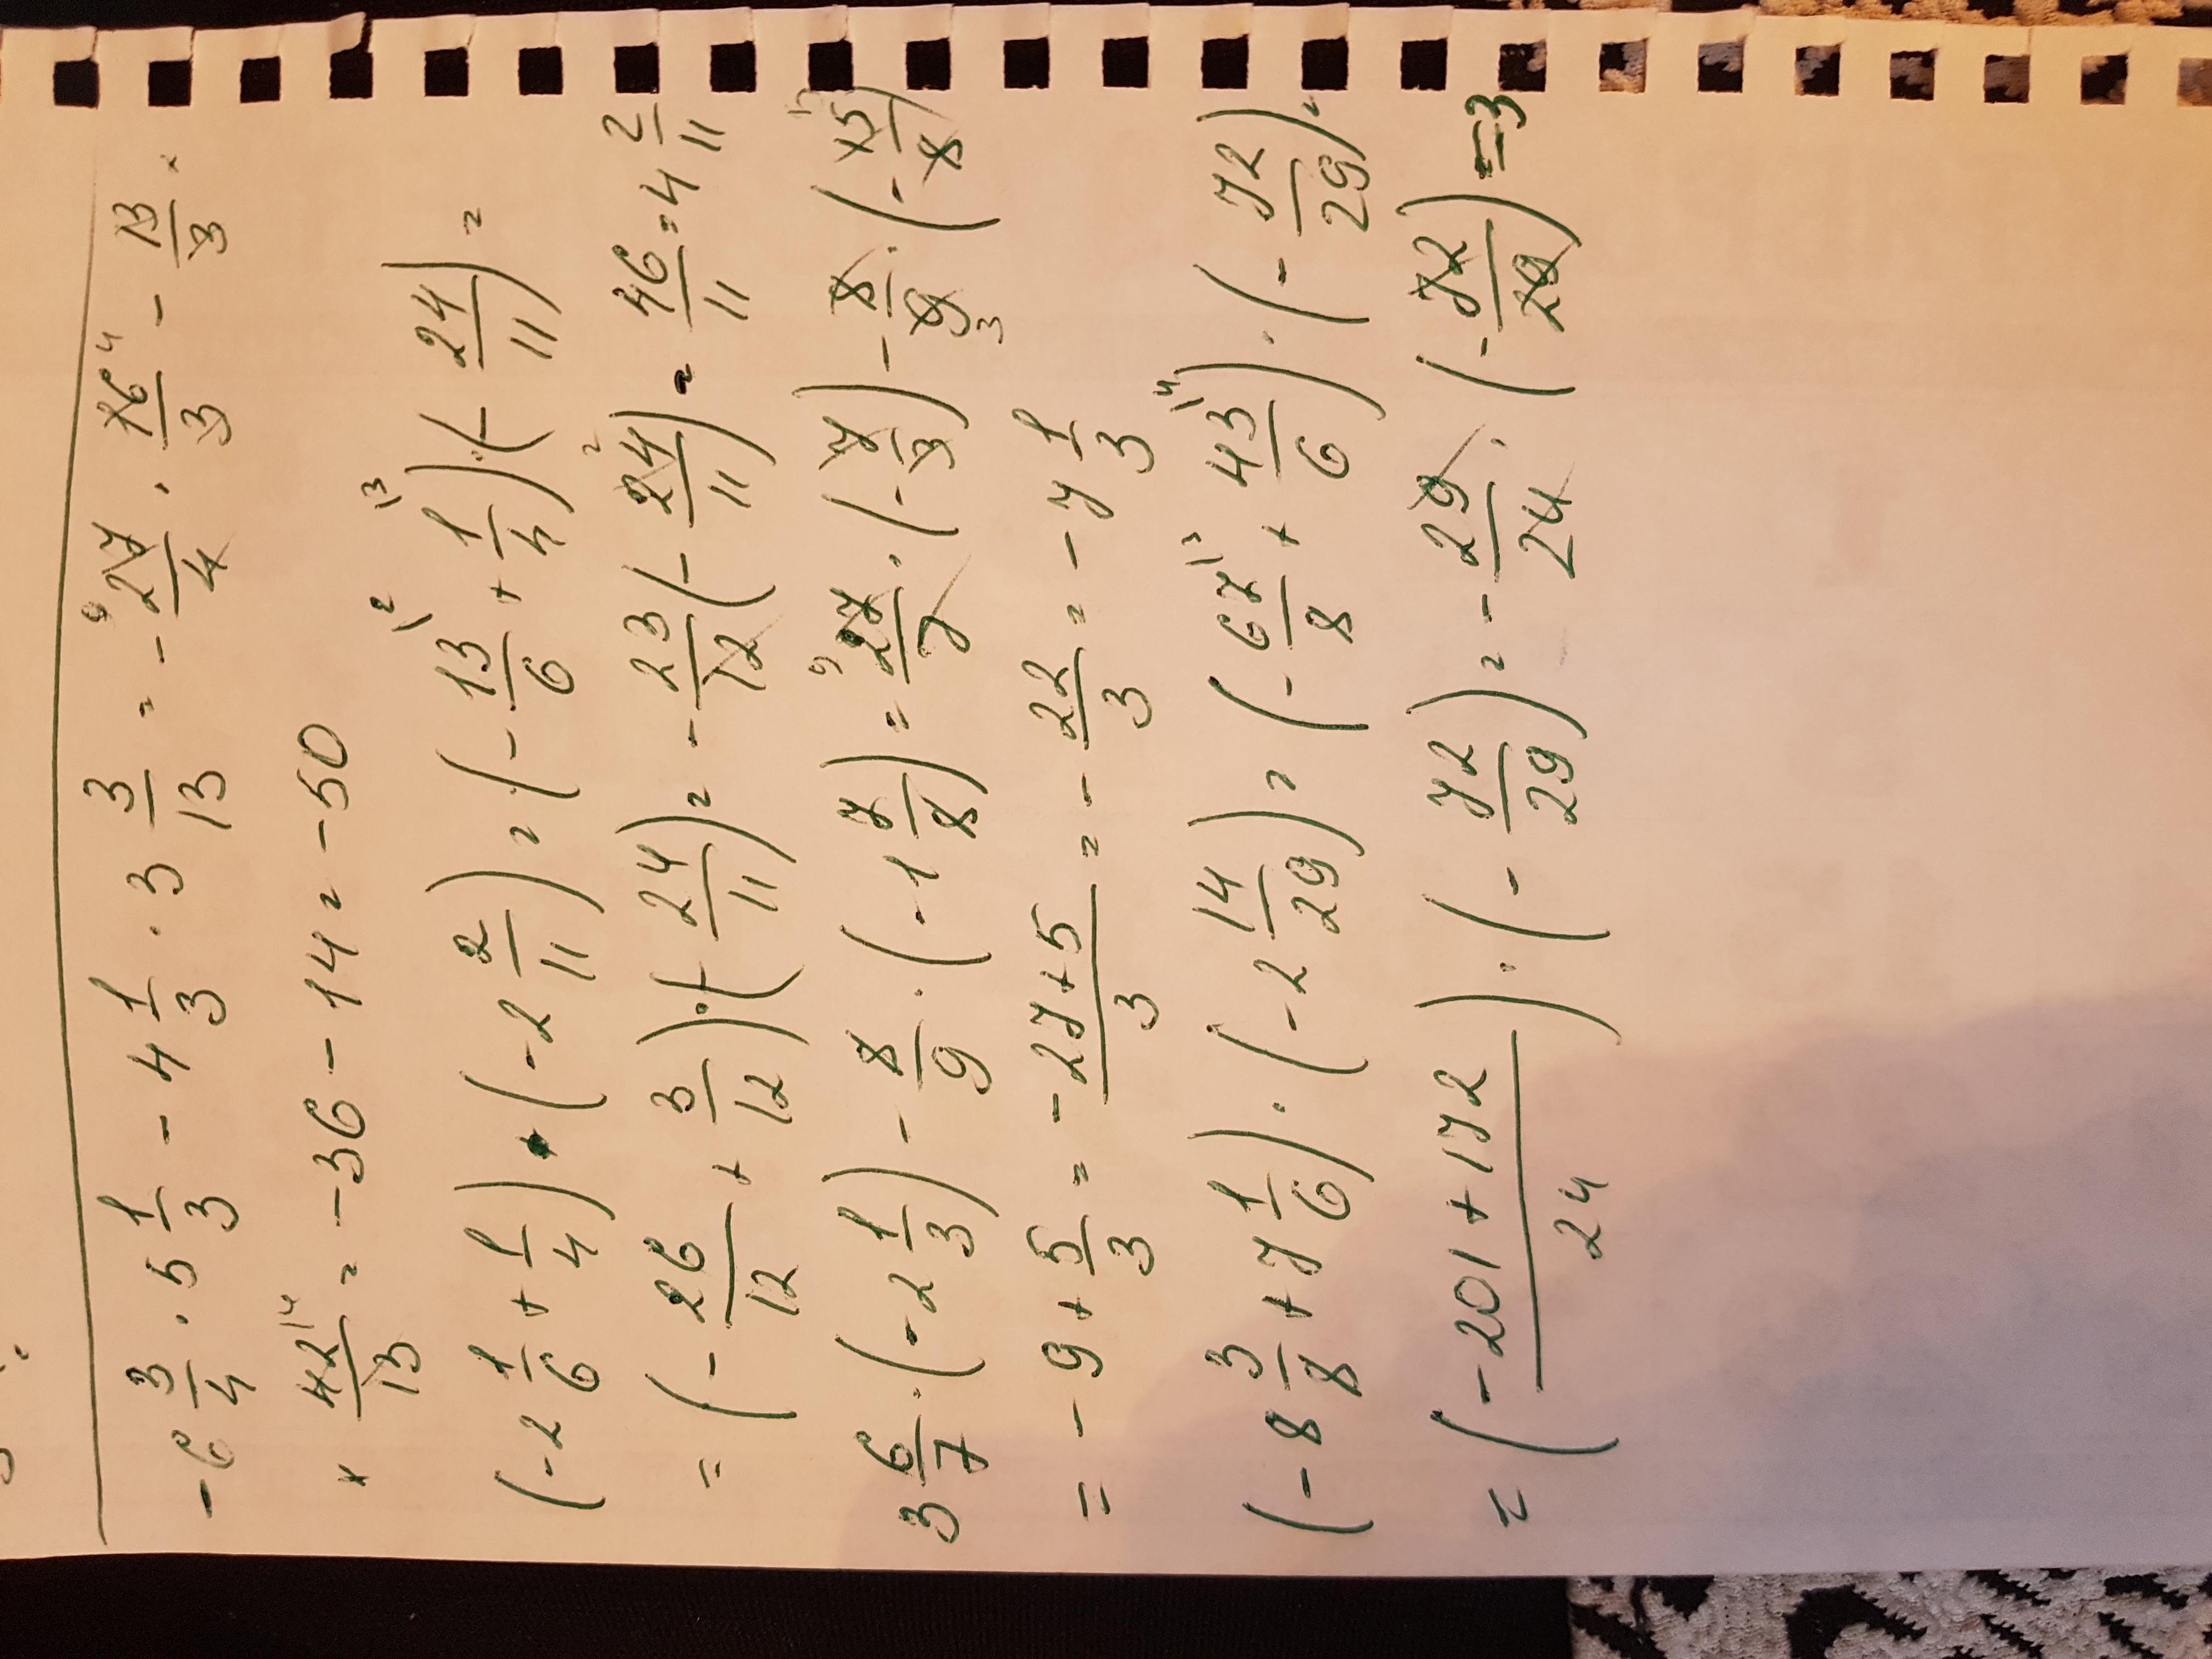 -6 3/4 · 5 1/3 - 4 1/3 · 3 3/13 = - 27/4 · 16/3 - 13/3 ×
× 42/13 = -36 - 14 = -50
(-2 1/6 + 1/4) · (-2 2/11) = (- 13/6 + 1/4) · (- 24/11) =
= (- 26/12 + 3/12) · (- 24/11) = - 23/12 (- 24/11) = 46/11 = 4 2/11
3 6/7 · (-2 1/3) - 8/9 · (-1 7/8) = 27/7 · (- 7/3) - 8/9 · (- 15/8)
= - 9 + 5/3 = (-27+5)/3 = - 22/3 = - 7 1/3
(-8 3/8 + 7 1/6) · (-2 14/29) = (- 67/8 + 43/6) · (- 72/29) =
= ((-201 + 172)/24) · (- 72/29) = - 29/24 · (- 72/29) = 3